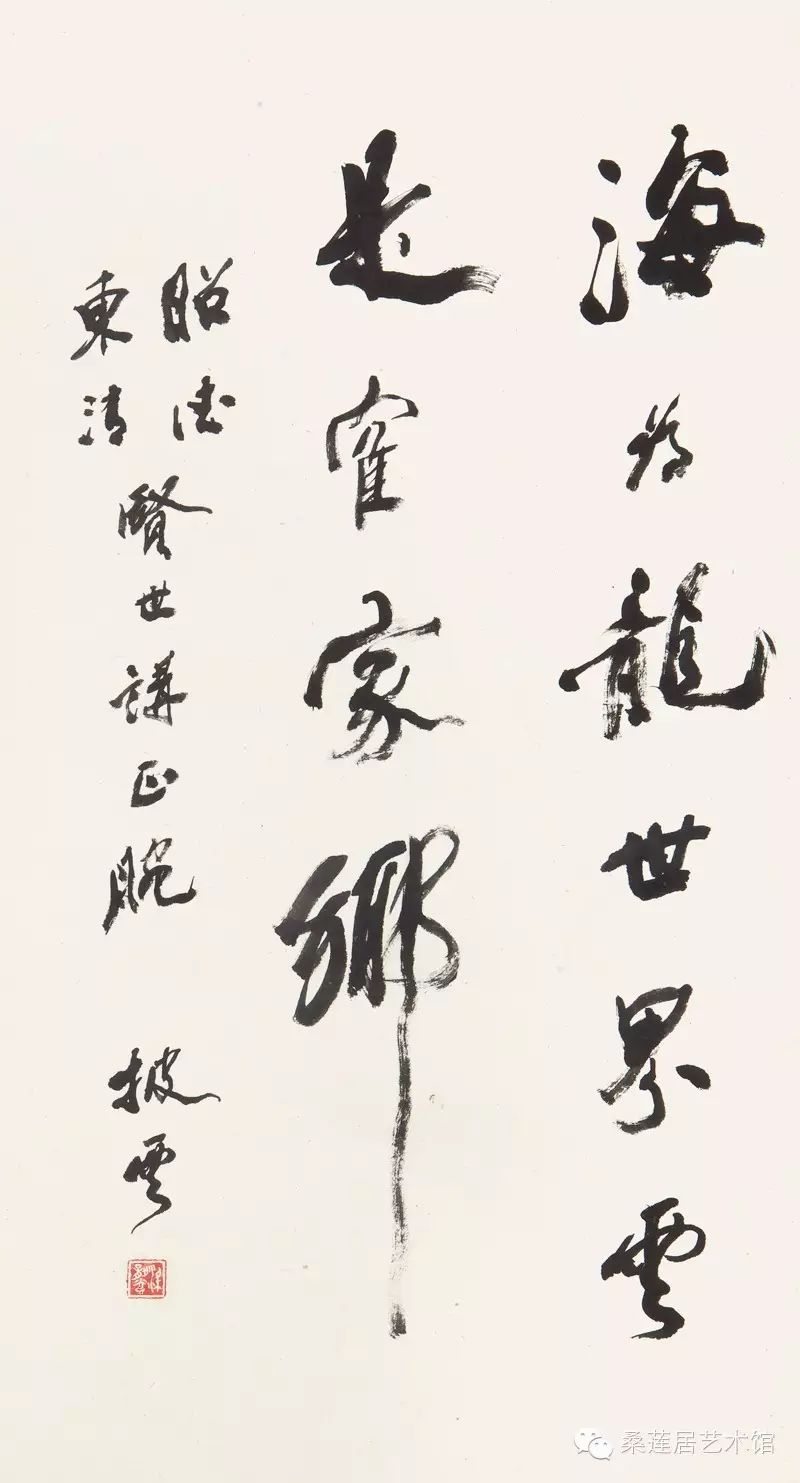 海為龍世界雲
是寉家鄉
昭德
東清
賢世講正腕 披雲
桑莲居艺术馆